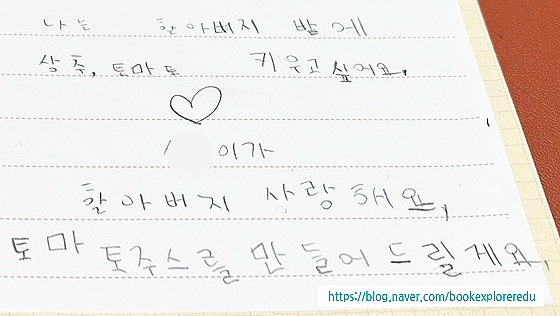 나는 할아버지 밭에
상추, 토마토 키우고 싶어요.
이가
할아버지 사랑해요,
토마토주스를 만들어 드릴게요.
https://blog.naver.com/bookexploreredu